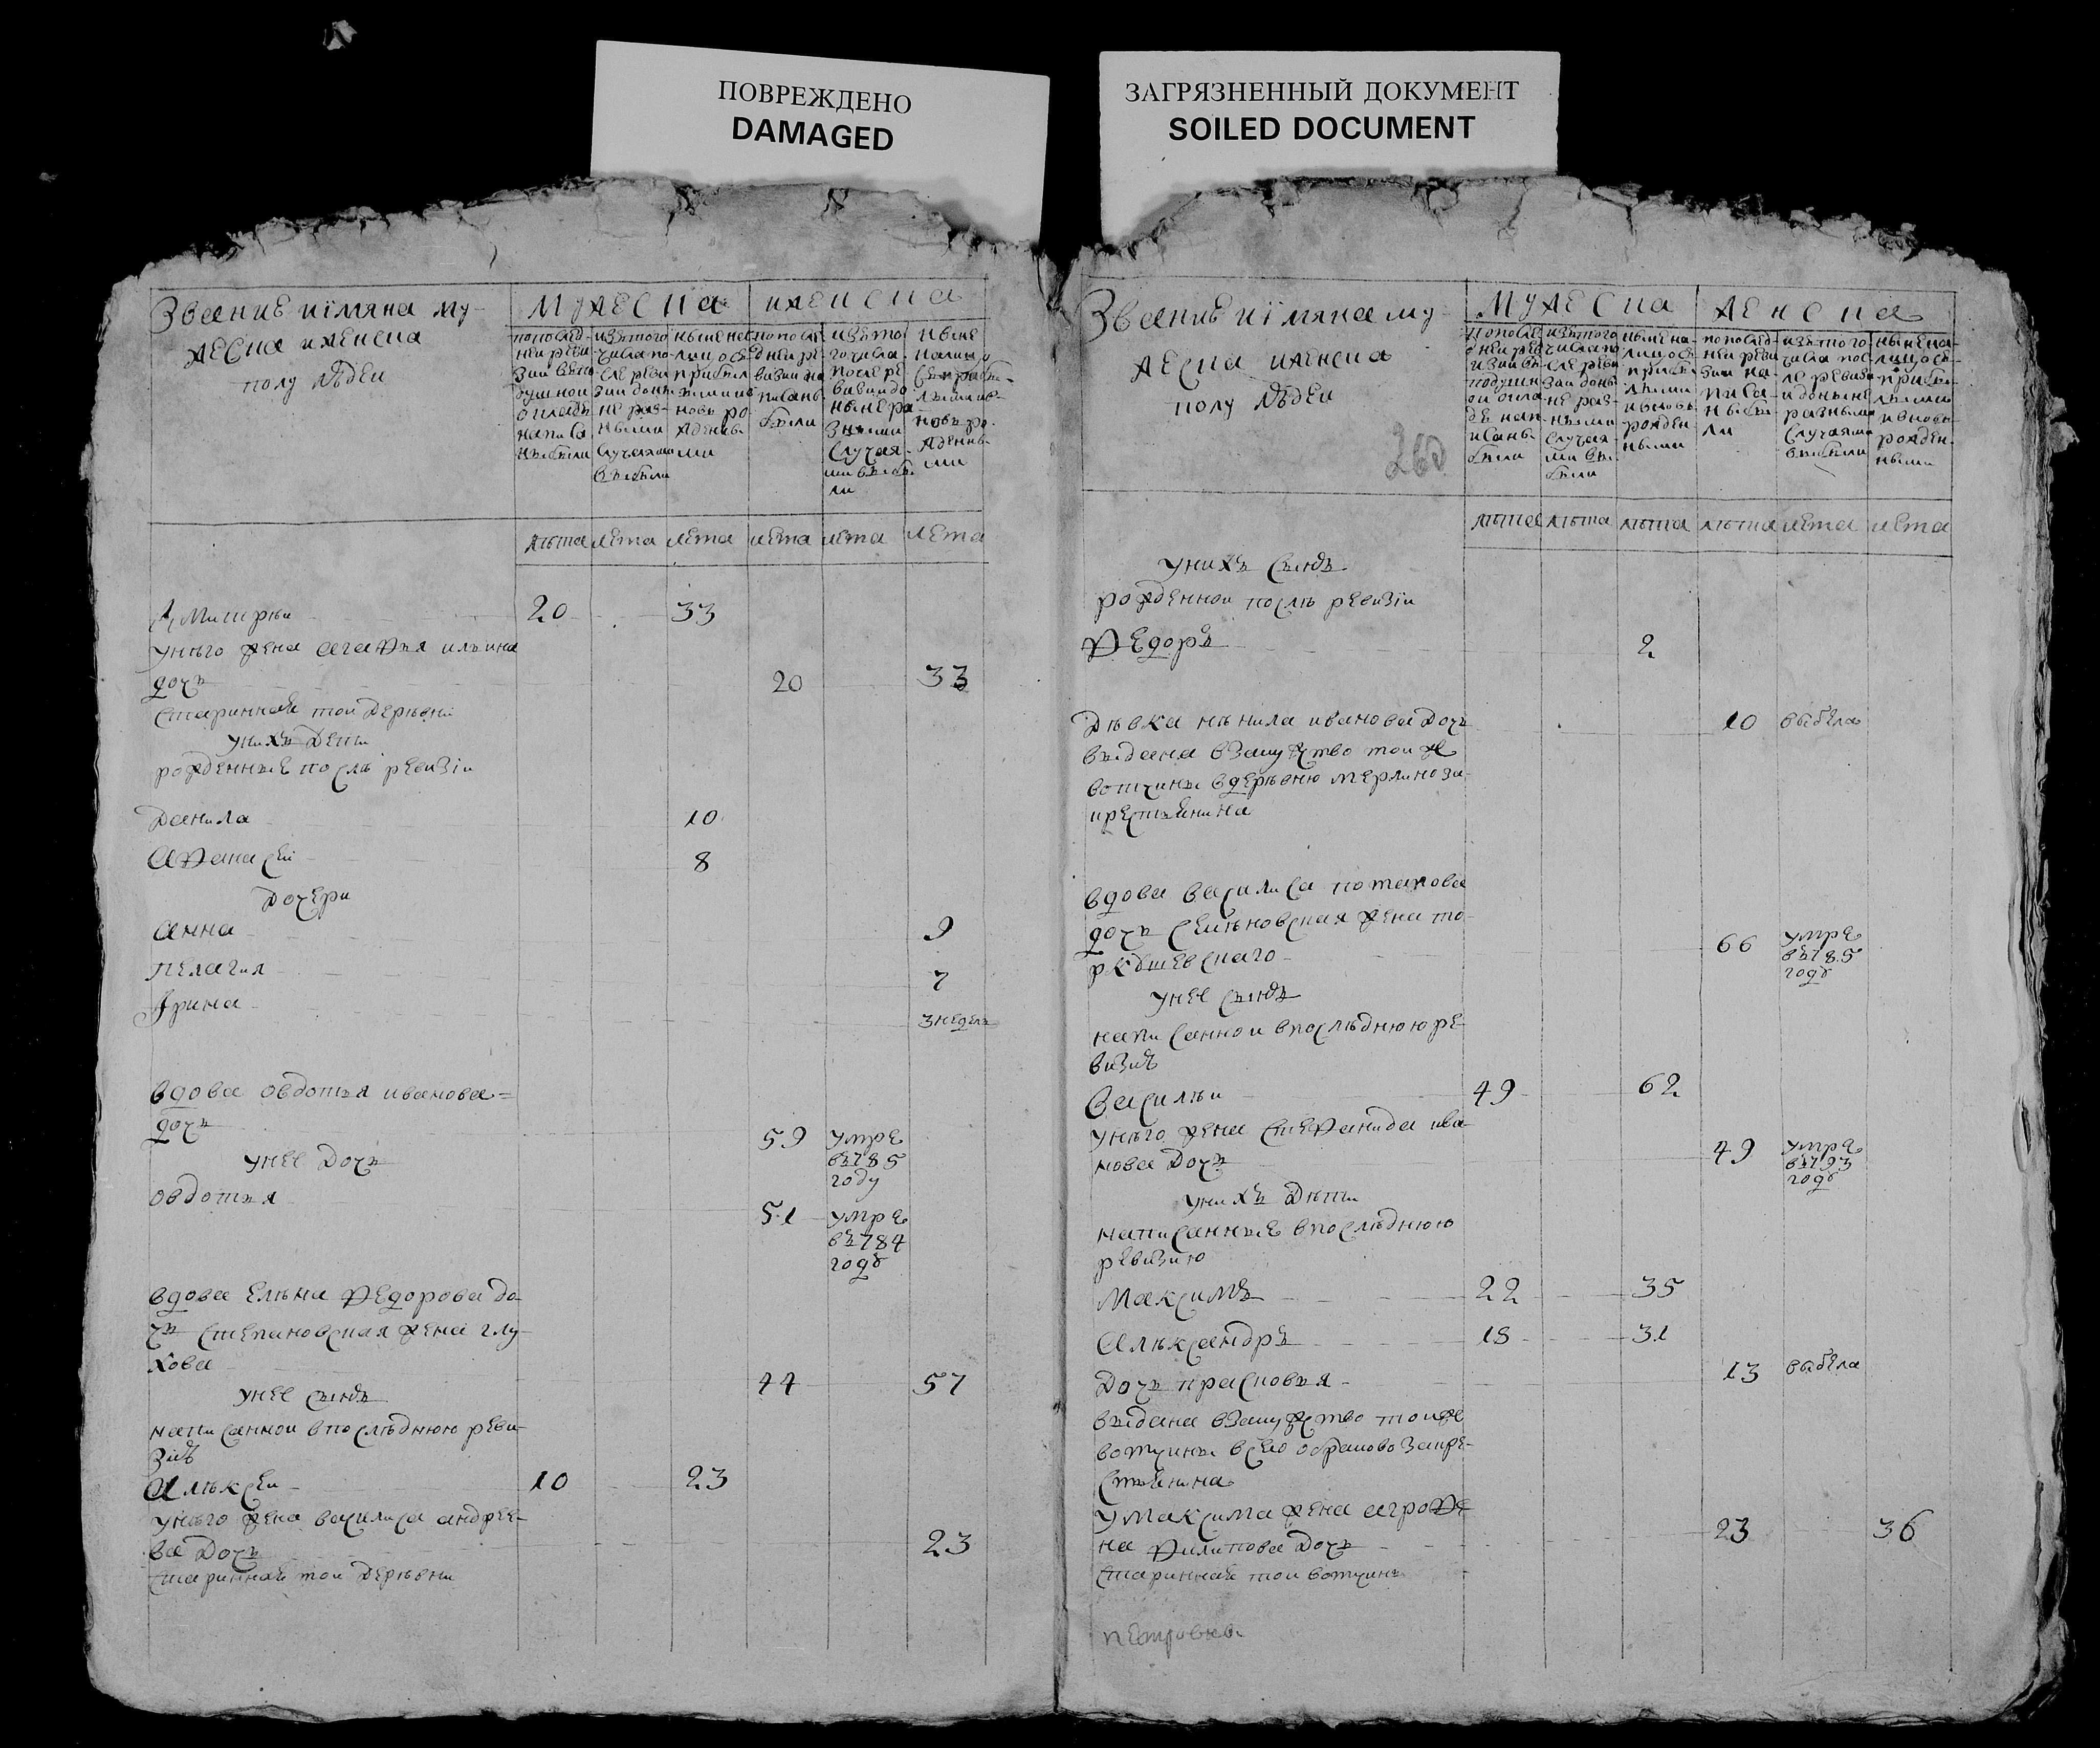 ПОВРЕЖДЕНО
DAMAGED
ЗАГРЯЗНЕННЫЙ ДОКУМЕНТ
SOILED DOCUMENT
Звание иімяна му-
жеска иженска
полу людеи
мужеска
иженска
попослед-
неи реви
зии вепо
душнои
окладъ
написа
ны были
изътого
числа по
сле реви
зии доны
не раз-
ными
случаями
выбыли
ныне на
лицо съ
прибыл
лыми и
новъ ро
жденны
ми
попосле
днеи ре
визии на
писаны
были
изъто
го числа
после ре
визии до
ныне ра
зными
случая
ми выбы
ли
ныне
налицо
съ прибы-
лыми ив-
новъ ро-
жденны
ми
лѣта лета лета лета лета лета
Дмитреи 20 33
унѣго жена агафья ильина
дочь 20 33
стариннаѣ тои деревни
унихъ дети
рожденные послѣ ревизіи
Данила 10
Афанасеи 8
Дочери
анна 9
пелагия 7
Ірина 3 недели
вдова овдотья иванова=
дочь 59 умре
въ 785
году
унее дочь
овдотья 51 умре
въ 784
годȣ
вдова елѣна федорова до
чь степановская жена глу-
хова 44 57
унее сынъ
написаннои впослѣднюю реви-
зию
Алѣксеи 10 23
унѣго жена василиса андрее-
ва дочь 23
стариннаѣ тои дерѣвни
Звание иімяна му-
жеска иженска
полу людеи
260
мужеска
женска
попосле
днеи рев
изии въ
подушн
ои окла
де нап
исаны
были
изътого
числа по
сле реви
зии доны
не раз-
ными
случая-
ми вы
были
ныне на
лицо съ
прибы
лыми
ивновь
рожден
ными
попослед-
неи реви
зии на-
писа-
ны бы
ли
изътого
числа пос
ле ревизи
и доныне
разными
случаями
выбыли
ныне на-
лицо съ
прибы-
лыми
ивновь
рожден-
ными
лѣта лѣта лѣта лѣта лета лета
унихъ сынъ
рожденнои послѣ ревизіи
Федоръ 2
Дѣвка нѣнила иванова дочь 10 выбыла
выдана взамужство тои же
вотчины вдерѣвню мерлино за
крестьянина
вдова василиса потапова
дочь семѣновская жена то-
ркȣшевскаго 66 умре
въ 785
годȣ
унее сынъ
написаннои впослѣднюю ре-
визию
Василѣи 49 62
унѣго жена стефанида ива
нова дочь 49 умре
въ 793
годȣ
унихъ дѣти
написанные впослѣднюю
ревизию
Максимъ 22 35
Алѣксандръ 18 31
Дочь прасковья 13 выбыла
выдана взамужство тоиже
вотчины всело абрамово закре-
стьянина
умаксима жена агрофе
на филипова дочь 23 36
стариннаѣ тои вотчины
петровны